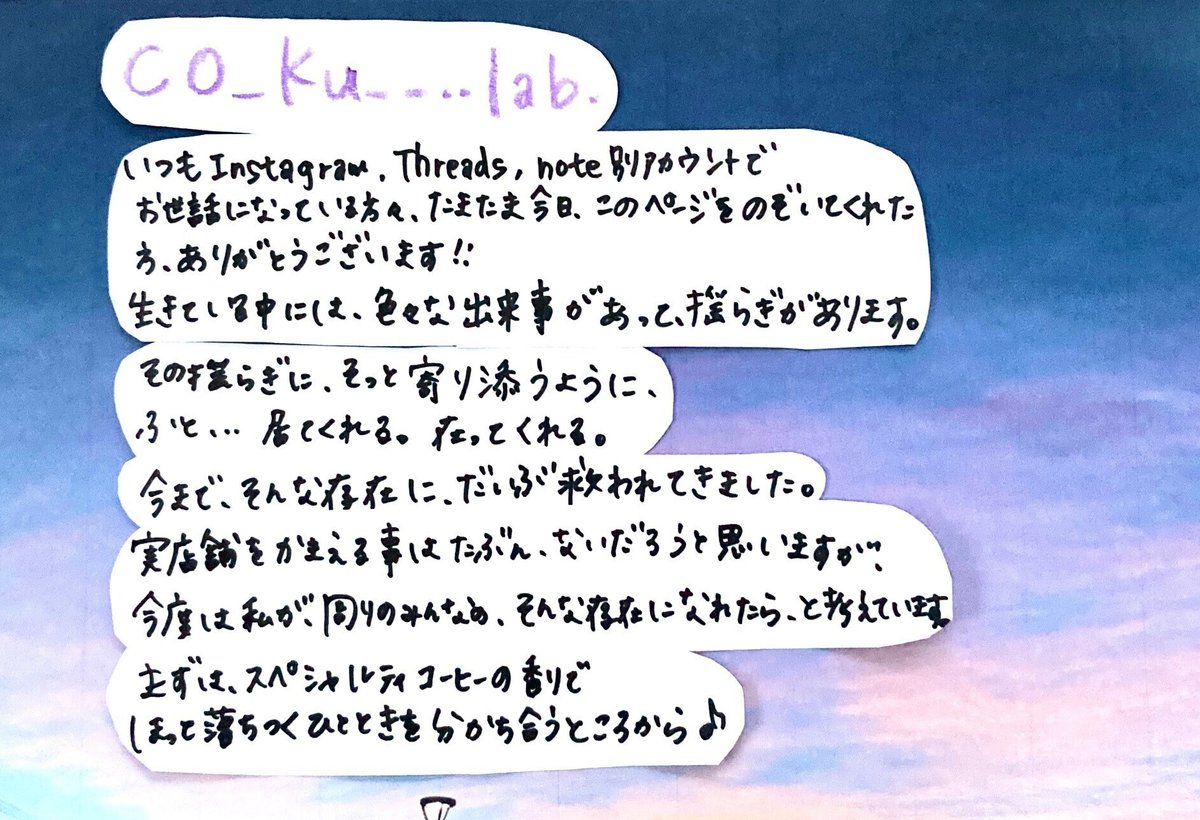 co_ku_--..lab.
いつもInstagram, Threads, note別アカウントで
お世話になっている方々、たまたま今日、このページをのぞいてくれた
方、ありがとうございます!!
生きている中には、色々な出来事があって、揺らぎがあります。
その揺らぎに、そっと寄り添うように、
ふと... 居てくれる。在ってくれる。
今まで、そんな存在に、だいぶ救われてきました。
実店舗をかまえる事はたぶん、ないだろうと思いますが、
今度は私が、周りのみんなの、そんな存在になれたら、と考えています。
まずは、スペシャルティコーヒーの香りで
ほっと落ちつくひとときを分かち合うところから♪